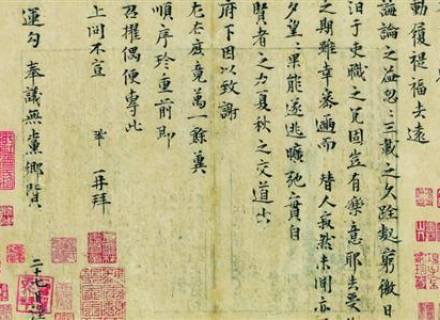 動履禔福去遠
誨論之益忽〻三載之久跧處窮徼日
汨于吏職之冗固豈有樂意耶去受
之期雖幸密邇而替人寂然未聞亦
夕望〻果能遂逃曠弛實自
賢者之力夏秋之交道出
府下因以致謝
左右庶竟萬一餘冀
順序珍重前即
召擢偶便專此
上問不宣 鞏 再拜
運勾奉議無黨鄉賢
二十七日